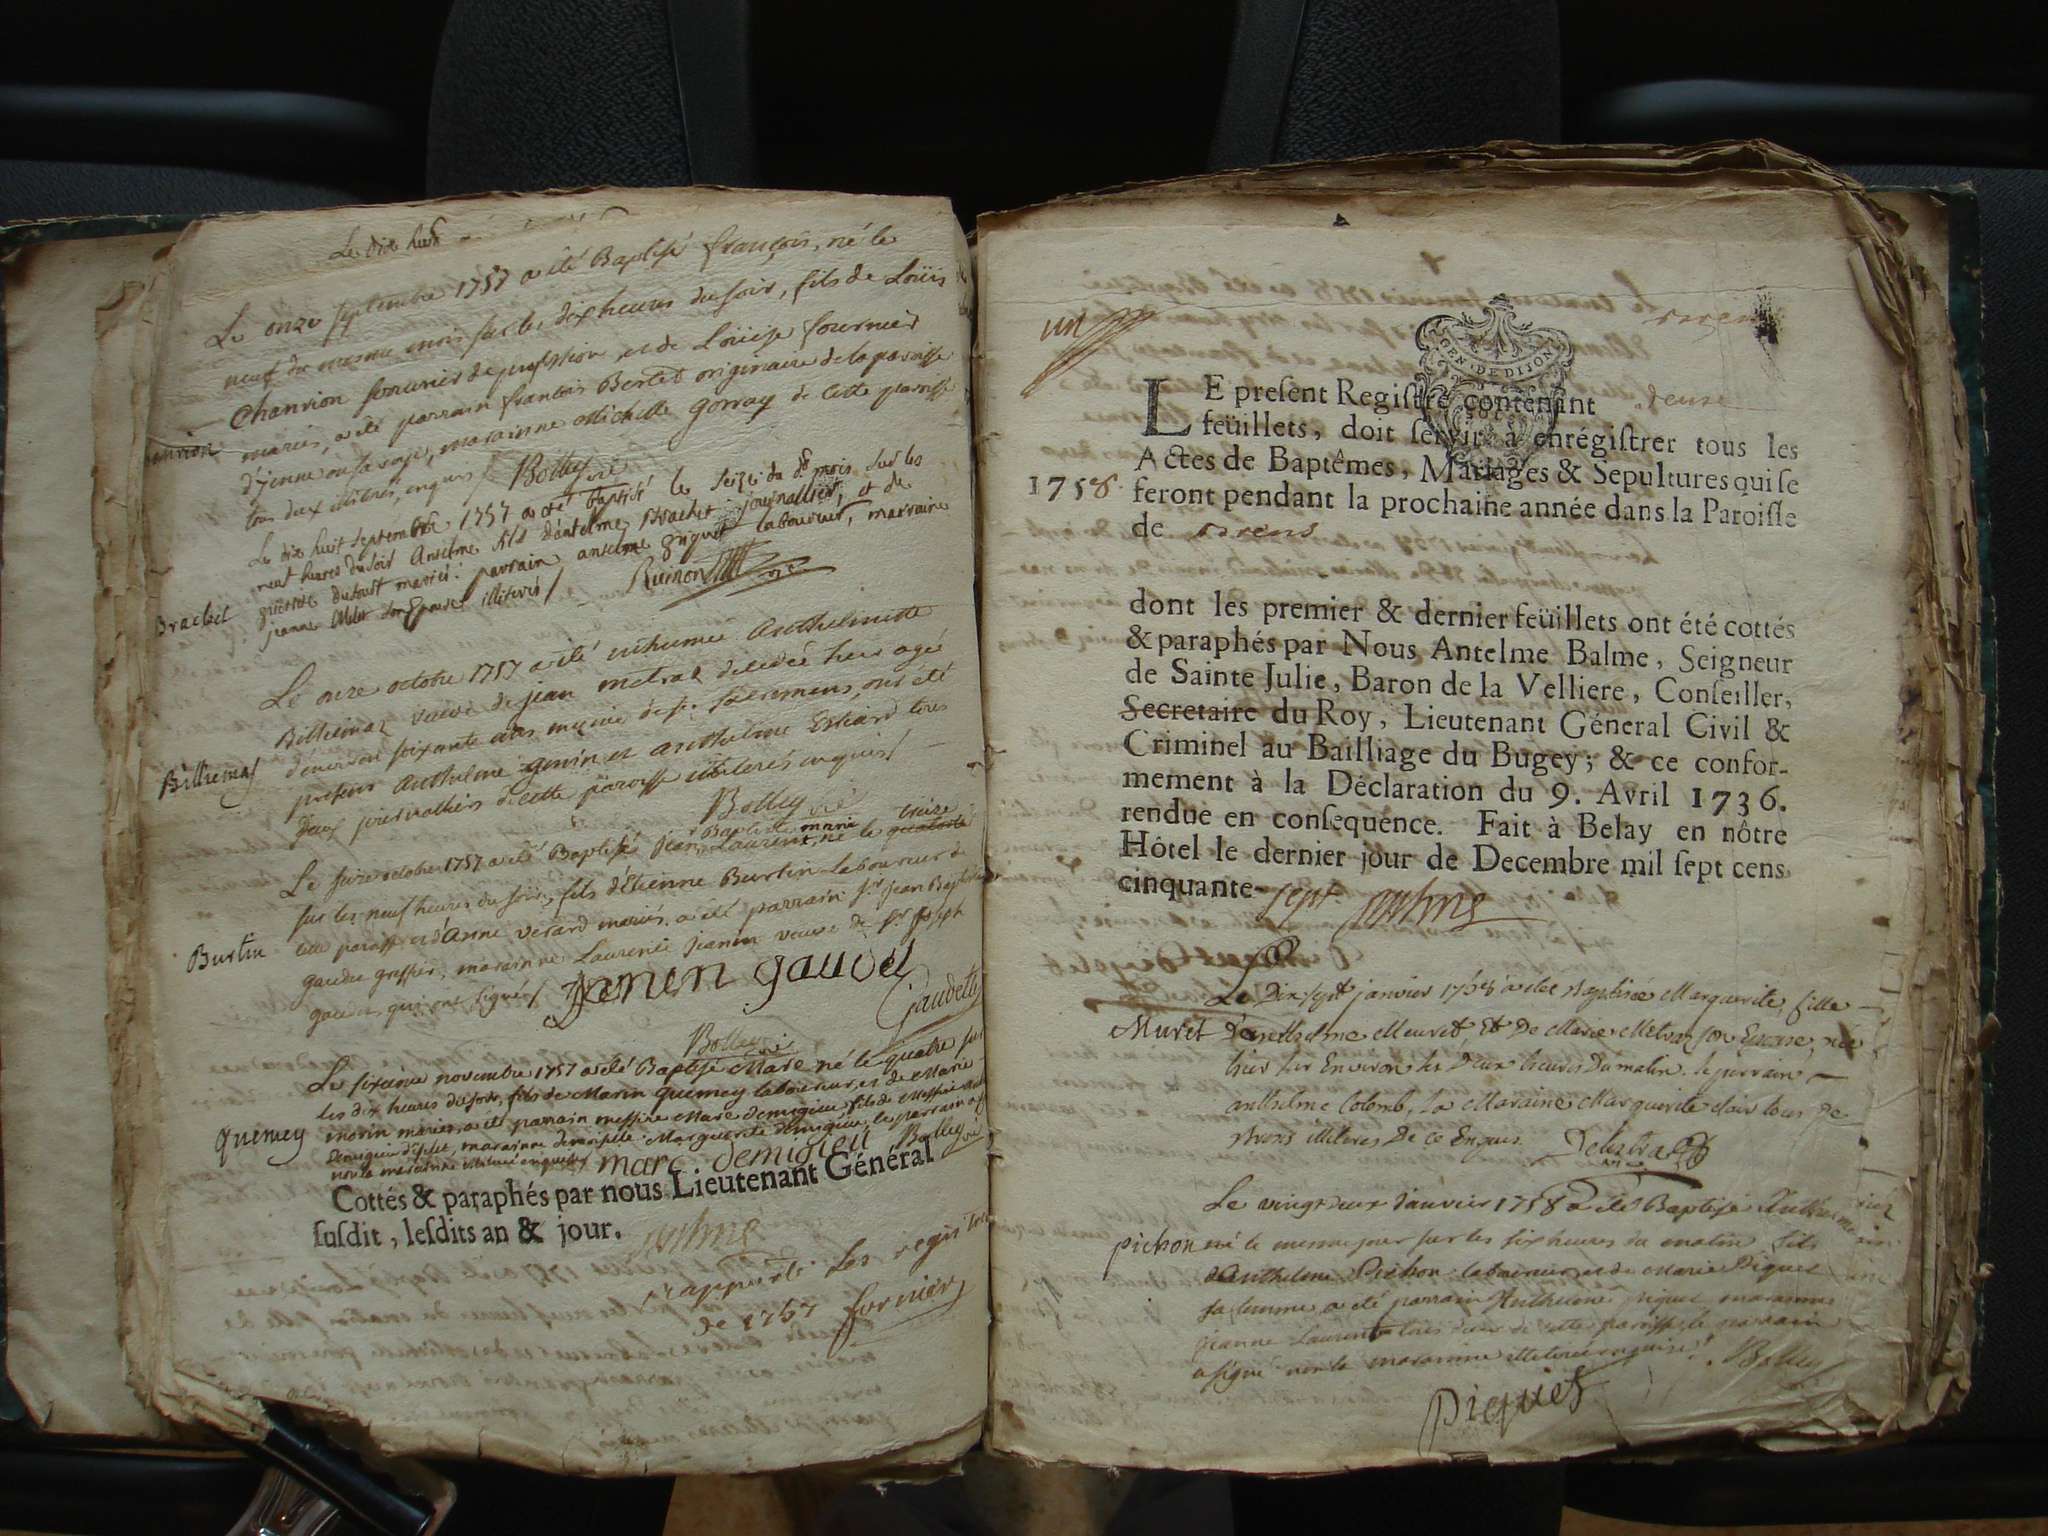 Le dix huit
Le onze septembre 1757 a été Baptisé françois, né le
neuf du mesme mois sur les dix heures du soir, fils de Loüis
Chanrion serrurier de profession et de Loüise fournier
mariés, a été parrain françois Bertet originaire de la paroisse
d'jenne en savoye, marainne Michelle Gorray de cette paroisse
tous deux illiterés, enquis /. Bolley vic
Le dix huit septembre 1757 a été baptisé le seize du d. mois sur les
neuf heures du soir Anselme fils d'antelme Brachet journallier, et de
jeanne Milet son Epouse illiterés /
Ruinon
Brachet
Le onze octobre 1757 a été inhumée Anthelmette
Billiemaz veuve de jean metral décédée hier agée
d'environ soixante ans munie des st. sacremens, ont été
presens Anthelme genin et Anthelme Estiard tous
deux journaliers de cette paroisse illiterés enquis /
Billiemaz
Bolley vic
Baptiste marie treize
Le seize octobre 1757 a été Baptisé jean Laurent, né le quatorze
sur les neuf heures du soir, fils d'Etienne Burtin Laboureur de
cette paroisse et d'Anne verard mariés. a été parrain sr. jean Baptiste
gaudet greffier, marainne Laurence janin veuve de sr. joseph
gaudet qui ont signés /
Burtin
Janin gaudet
Gaudet
Bolley vic
Le sixieme novembre 1757 a été Baptisé Marc né le quatre sur
les dix heures du soir, fils de Marin quemey laboureur et de Marie
morin mariés, a été parrain messire Marc demigieu, fils de Messire
marainne demoiselle Marguerite demigieu, le parrain a s
non la marainne
quemey
marc demigieu Bolley vic
Cottés & paraphés par nous Lieutenant Général
susdit, lesdits an & jour.
Balme
rapporté les registres
de 1757 fornier
un
GEN. DE DIJON
LE present Registre contenant
feüillets, doit servir à enrégistrer tous les
Actes de Baptêmes, Mariages & Sepultures qui se
1758. feront pendant la prochaine année dans la Paroisse
de Brens
dont les premier & dernier feüillets ont été cottés
& paraphés par Nous Antelme Balme, Seigneur
de Sainte Julie, Baron de la Velliere, Conseiller,
Secretaire du Roy, Lieutenant Géneral Civil &
Criminel au Bailliage du Bugey; & ce confor-
mement à la Déclaration du 9. Avril 1736.
rendue en consequence. Fait à Belay en nôtre
Hôtel le dernier jour de Decembre mil sept cens
cinquante-sept. Balme
Le Dix sept janvier 1758 a été Baptisée Marguerite, fille
Muret D'anthelme Meuret, Et De Marie Metraz son Epouse, née
hier sur Environ les Deux heures Du matin. le parrain
anthelme Colomb, La Maraine Marguerite Clair tous De
Brens illiteres De ce Enquis.
Le vingt deux Janvier 1758 a été Baptisé Anthelme
pichon né le mesme jour sur les six heures du matin fils
d'Anthelme Pichon laboureur et de Marie Piquet
sa femme, a été parrain Anthelme piquet marainne
jeanne Laurent tous deux de cette paroisse, le parrain
a signé non la marainne illiterée enquise /. Bolley
Piquet